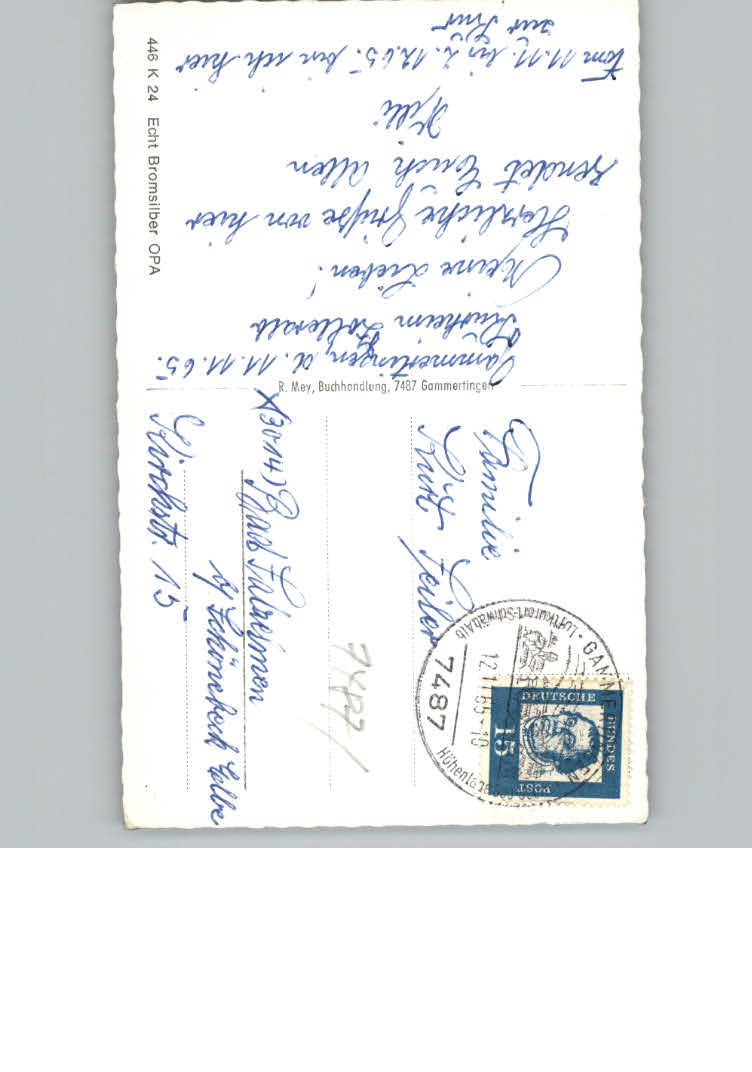 Gammertingen, d. 11.11.65.
Kurheim Zolleralb
Meine Lieben!
Herzliche Grüße von hier
sendet Euch Allen
Willi
Vom 11.11. bis 2.12.65. bin ich hier
zur Kur
446 K 24 Echt Bromsilber OPA
R. Mey, Buchhandlung, 7487 Gammertingen
Familie
Kurt Zeiler
(3014) Bad Salzelmen
b/ Schönebeck Elbe
Kirchstr. 15
7487
7487
GAMMERTINGEN
Luftkurort - Schwäb Alb
Höhenlage
12.11.65-18
DEUTSCHE
BUNDES
POST
15